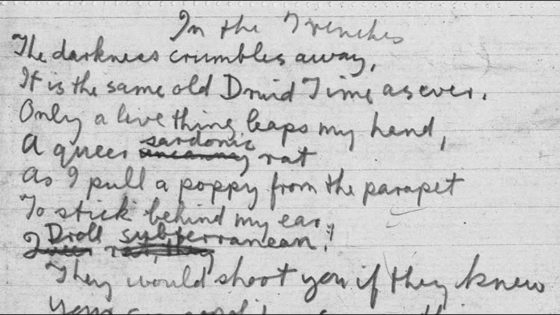 In the Trenches
The darkness crumbles away,
It is the same old Druid Time as ever.
Only a live thing leaps my hand,
sardonic
A queer uncanny rat
As I pull a poppy from the parapet
To stick behind my ear;
Droll subterranean!
rat, they
They would shoot you if they knew